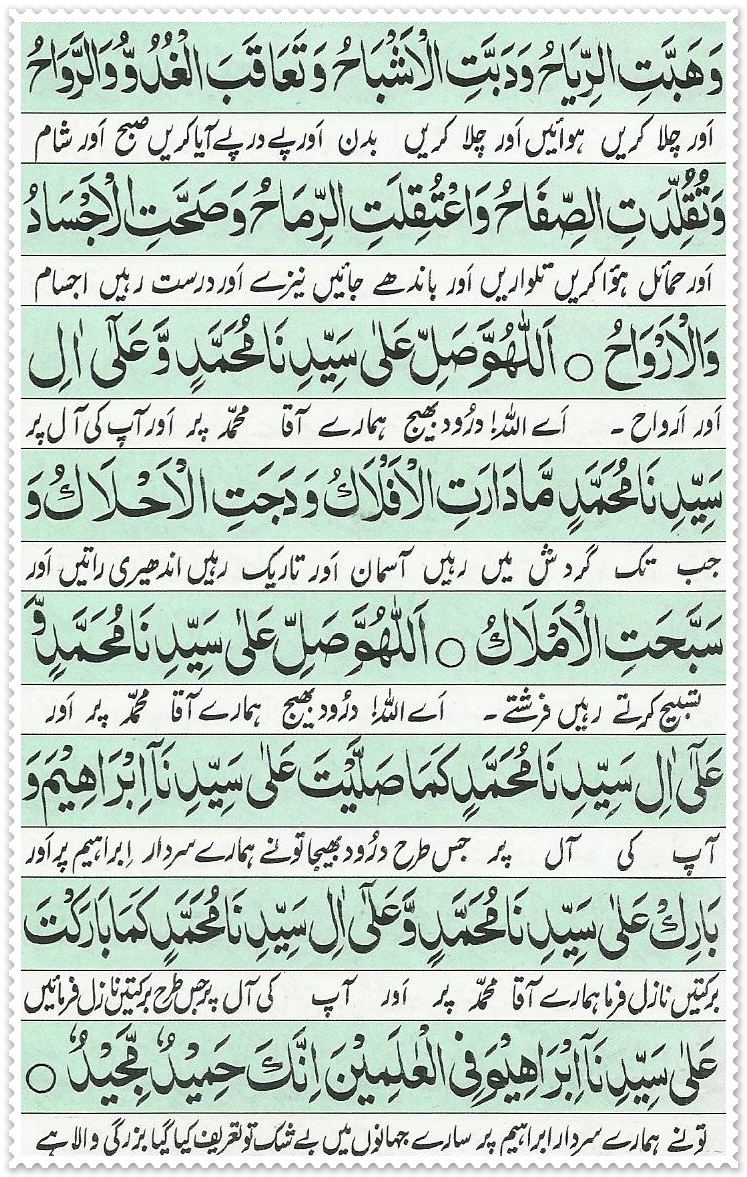 وَهَبَّتِ الرِّيَاحُ وَدَبَّتِ الْاَشْبَاحُ وَتَعَاقَبَ الْغُدُوُّ وَالرَّوَاحُ
اَور چلا کریں ہوائیں اَور چلا کریں بدن اَور پے درپے آیا کریں صبح اَور شام
وَتُقُلِّدَتِ الصِّفَاحُ وَاعْتُقِلَتِ الرِّمَاحُ وَصَحَّتِ الْاَجْسَادُ
اَور حمائل ہؤا کریں تلواریں اَور باندھے جائیں نیزے اَور درست رہیں اجسام
وَالْاَرْوَاحُ ○ اَللّٰهُمَّ صَلِّ عَلٰى سَيِّدِنَا مُحَمَّدٍ وَّعَلٰٓى اٰلِ
اَور اَرواح ۔ اَے اللہ! درُود بھیج ہمارے آقا محمّد پر اَور آپ کی آل پر
سَيِّدِنَا مُحَمَّدٍ مَّا دَارَتِ الْاَفْلَاكُ وَدَجَتِ الْاَحْلَاكُ وَ
جب تک گردش میں رہیں آسمان اَور تاریک رہیں اندھیری راتیں اَور
سَبَّحَتِ الْاَمْلَاكُ ○ اَللّٰهُمَّ صَلِّ عَلٰى سَيِّدِنَا مُحَمَّدٍ وَّ
تسبیح کرتے رہیں فرشتے ۔ اَے اللہ! درُود بھیج ہمارے آقا محمّد پر اَور
عَلٰٓى اٰلِ سَيِّدِنَا مُحَمَّدٍ كَمَا صَلَّيْتَ عَلٰى سَيِّدِنَآ اِبْرَاهِيْمَ وَ
آپ کی آل پر جس طرح درُود بھیجا تونے ہمارے سردار اِبراہیم پر اَور
بَارِكْ عَلٰى سَيِّدِنَا مُحَمَّدٍ وَّعَلٰٓى اٰلِ سَيِّدِنَا مُحَمَّدٍ كَمَا بَارَكْتَ
برکتیں نازل فرما ہمارے آقا محمّد پر اَور آپ کی آل پر جس طرح برکتیں نازل فرمائیں
عَلٰى سَيِّدِنَآ اِبْرَاهِيْمَ فِى الْعٰلَمِيْنَ اِنَّكَ حَمِيْدٌ مَّجِيْدٌ ○
تونے ہمارے سردار ابراہیم پر سارے جہانوں میں بے شک تو تعریف کیا گیا بزرگی والا ہے